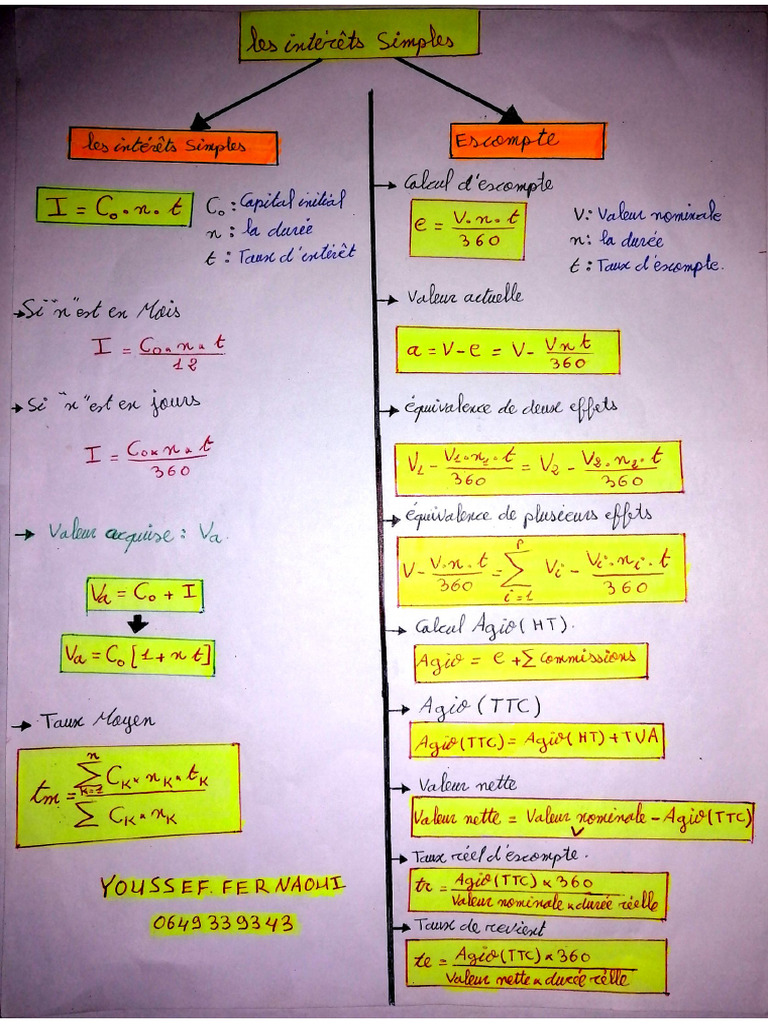 les intérêts Simples
les intérêts Simples
I = C₀ . n . t
C₀ : Capital initial
n : la durée
t : Taux d'intérêt
→ Si "n" est en Mois
I = C₀ × n × t / 12
→ Si "n" est en jours
I = C₀ × n × t / 360
→ Valeur acquise : Va.
Va = C₀ + I
Va = C₀ [1 + n t]
→ Taux Moyen
tm = ∑ₖ₌₁ⁿ Cₖ × nₖ × tₖ / ∑ Cₖ × nₖ
YOUSSEF.FERNAOUI
0649339343
Escompte
→ Calcul d'escompte
e = V . n . t / 360
V : Valeur nominale
n : la durée
t : Taux d'escompte.
→ Valeur actuelle
a = V - e = V - V n t / 360
→ équivalence de deux effets
V₁ - V₁ . n₁ . t / 360 = V₂ - V₂ . n₂ . t / 360
→ équivalence de plusieurs effets
V - V . n . t / 360 = ∑ᵢ₌₁ᴾ Vᵢ - Vᵢ . nᵢ . t / 360
→ Calcul Agio (HT).
Agio = e + ∑ commissions
→ Agio (TTC)
Agio (TTC) = Agio (HT) + TVA
→ Valeur nette
Valeur nette = Valeur nominale - Agio (TTC)
→ Taux réel d'escompte.
tr = Agio (TTC) × 360 / Valeur nominale × durée réelle
→ Taux de revient
te = Agio (TTC) × 360 / Valeur nette × durée réelle